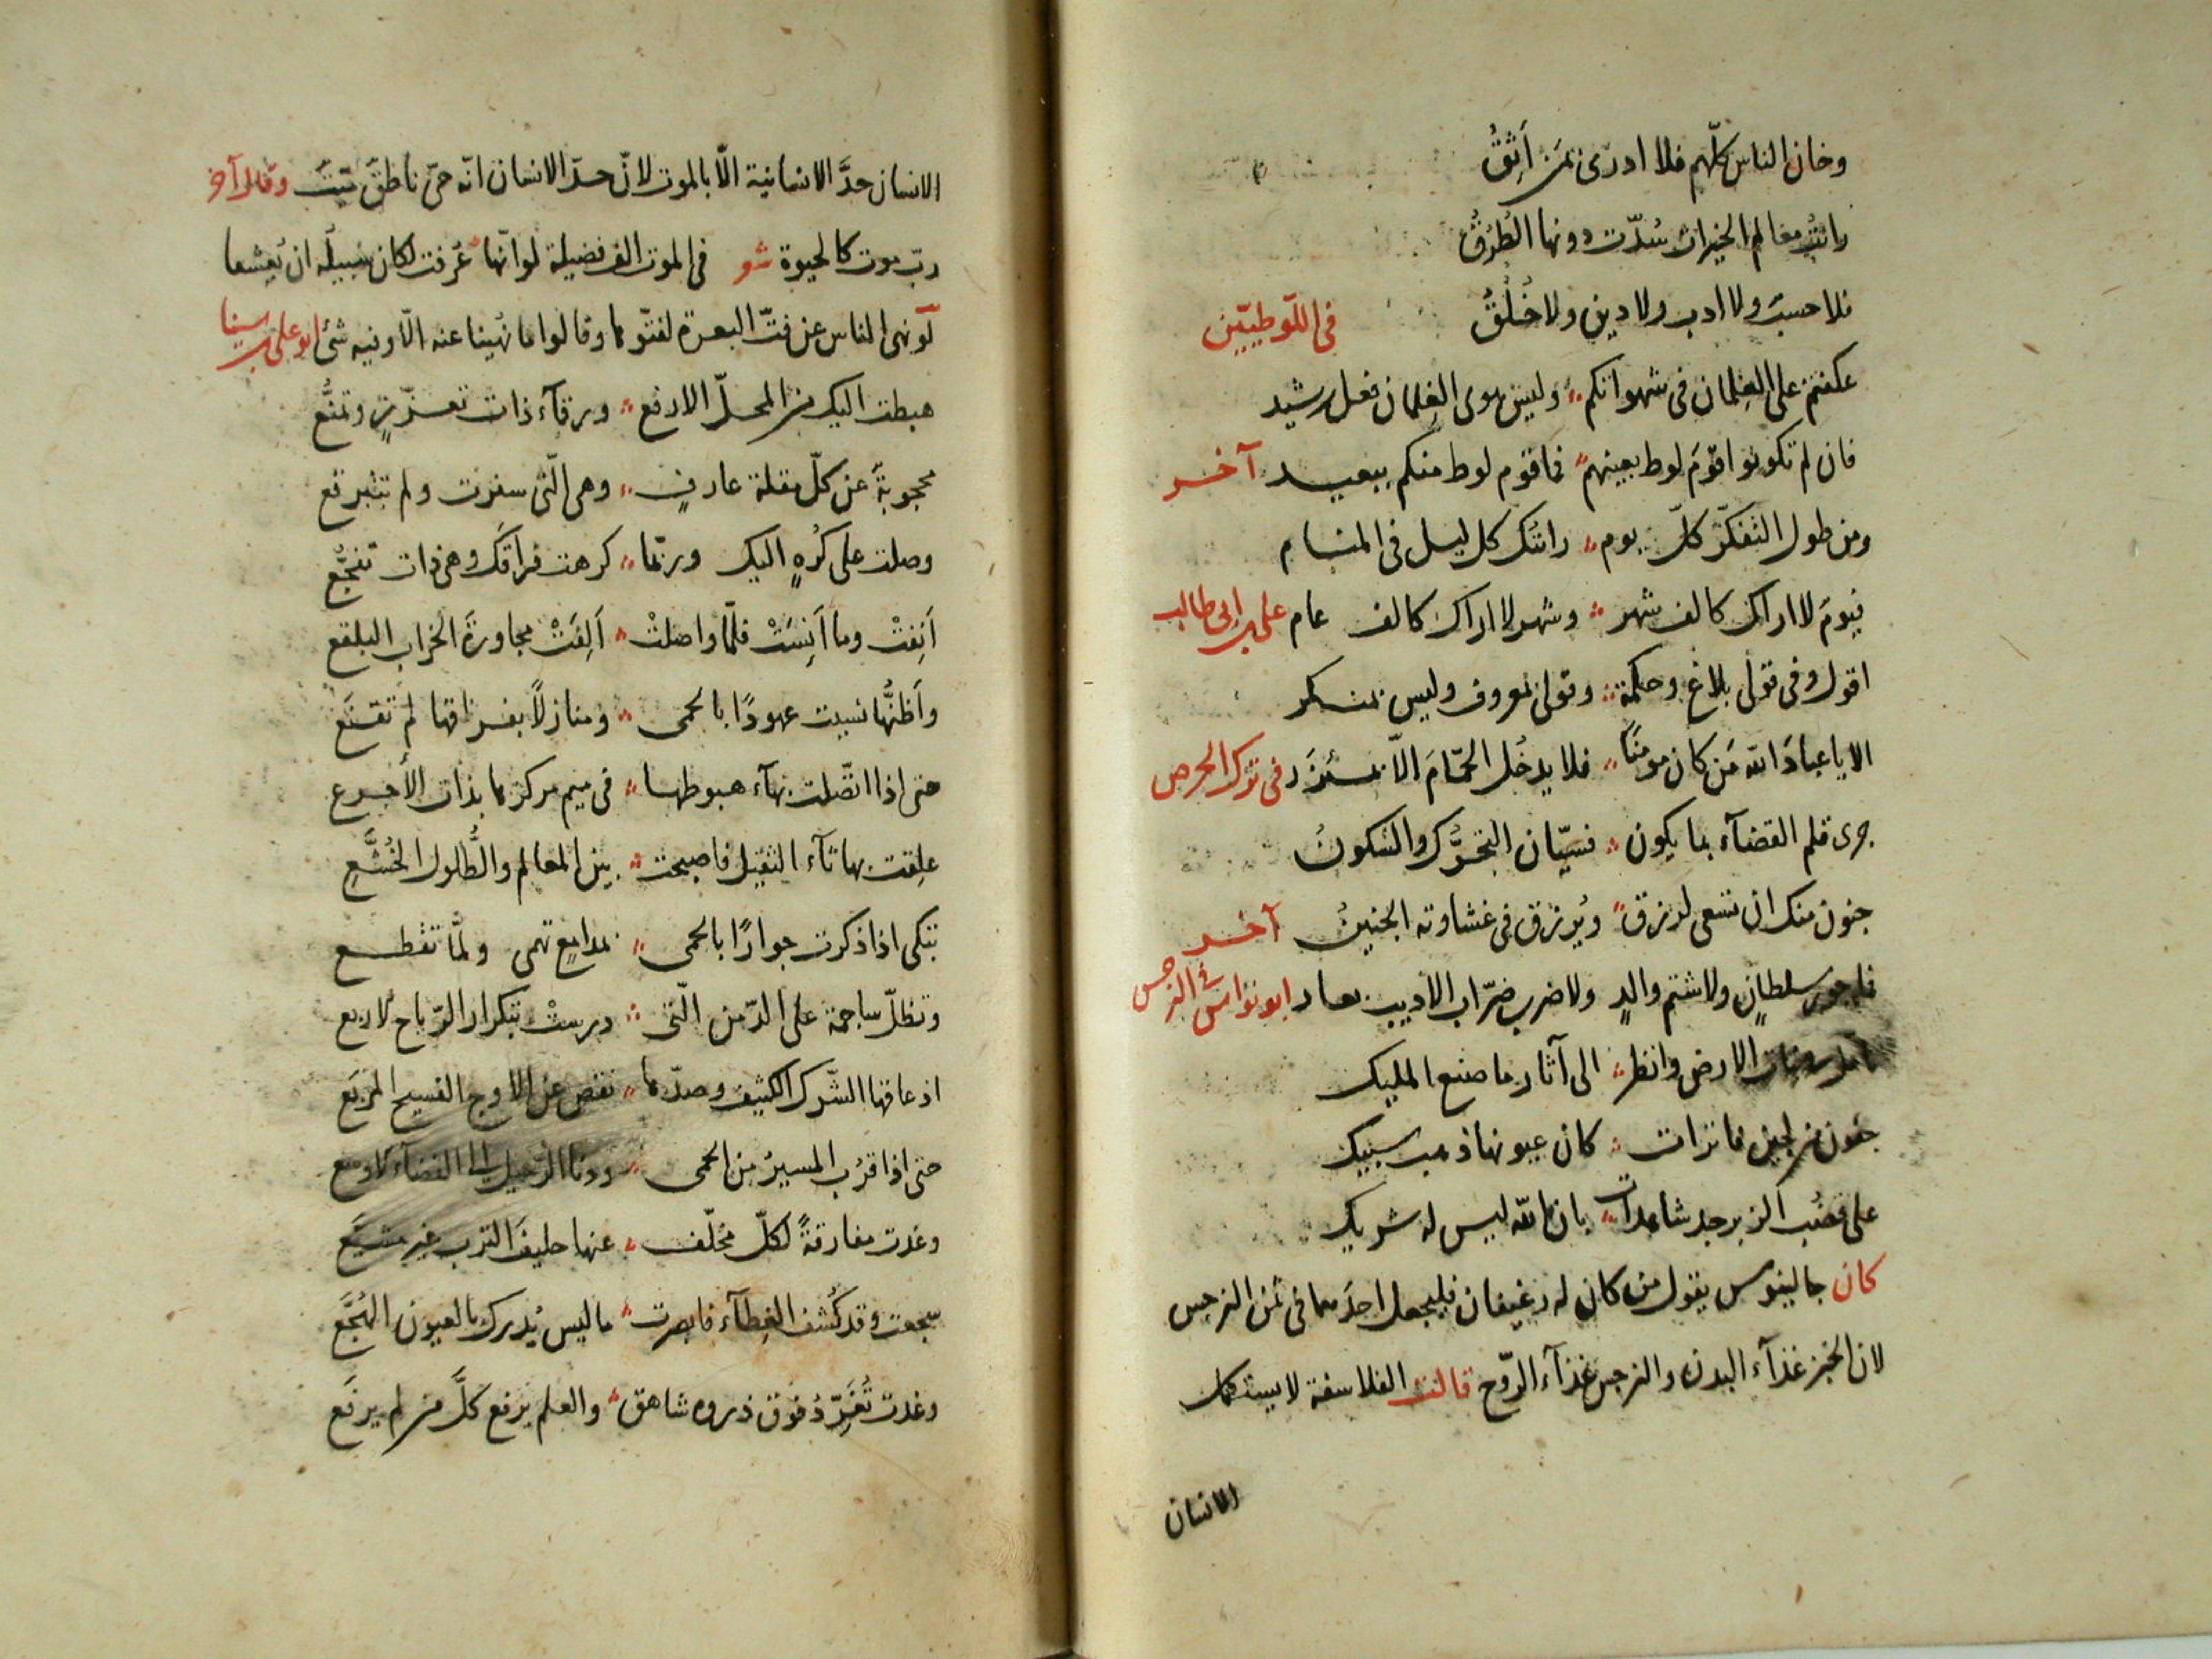 وخان الناس كلّهم فلا ادرى بمن أَثِقُ
رائت معالم الخيرات سُدّت دونها الطُرُقُ
فلا حسبَ ولا ادب ولا دين ولا خُلُقُ فى اللّوطيّين
عكفتم على الغلمان فى شهواتكم وليس هوى الغلمان فعل رشيد
فان لم تكونوا قوم لوط بعينهم فما قوم لوط منكم ببعيد آخر
ومن طول التفكّر كلّ يوم رائتك كل ليل فى المنام
فيوم لا اراك كالف شهر وشهر لا اراك كالف عام على بن ابى طالب
اقول وفى قولى بلاغ وحكمة وقولى معروف وليس بمنكر
الا يا عبادَ الله مَن كان مومنًا فلا يدخُل الحمّامَ الّا بمئزر فى ترك الحرص
جرى قلم القضآء بما يكون فسيّان التحرُّك والسّكونُ
جنون منك ان تسعى لرزق ويُرزق فى غشاوته الجنينُ آخر
فما جور سلطانٍ ولا شتم والدٍ ولا ضرب ضرّاب الاديب بعار ابو نواس فى النرجس
الارض وانظر الى آثار ما صنع المليك
من لجين فاترات كان عيونها ذهب سبيك
على قضُب الزبرجد شاهدات بان الله ليس له شريك
كان جالينوس يقول من كان له رغيفان فليجعل احدَهما فى ثمن النرجس
لان الخبز غذآء البدن والنرجس غذآء الرّوح قالت الفلاسفة لا يستكمل
الانسان
الانسان حدَّ الانسانية الّا بالموت لانّ حدّ الانسان انّه حىّ ناطق ميّت وقال آخر
ربّ موت كالحيوة شعر فى الموت الف فضيلة لو انّها عُرفت لكان سبيلُه ان يُعشقا
لو نهى الناس عن فتّ البعرة لفتّوها وقالوا ما نُهينا عنه الّا وفيه شئ ابو على بن سينا
هبطت اليك من المحلّ الارفع ورقآء ذات تعزّزٍ وتمنُّع
محجوبةً عن كلّ مقلة عارفٍ وهى الّتى سفرت ولم تتبرقع
وصلت على كُرهٍ اليك وربّما كرهت فراقَك وهى ذات تفجُّع
أَنِفتْ وما أَنِسَتْ فلمّا واصلتْ أَلِفَتْ مجاورةَ الخراب البلقع
وأَظنُّها نسيت عهودًا بالحمى ومنازلاً بفراقها لم تقنَع
حتى اذا اتّصلت بهآء هبوطها فى ميم مركزها بذات الأجرع
علِقت بها ثآء الثقيل فاصبحت بين المعالم والطُّلول الخُشَّعِ
تبكى اذا ذكرت جوارًا بالحمى بمدامعٍ تهمى ولمّا تقطع
وتظلّ ساجمة على الدّمن الّتى درستْ بتكرار الرّياح الاربع
اذ عاقها الشّرك الكثيف وصدّها نقص عن الاوج الفسيح المربَع
حتى اذا قرُب المسيرُ من الحمى ودنا الرّحيل الى الفضاء الاوسع
وغدت مفارقةً لكلّ مخلّف عنها حليفَ الترب غيرَ مشيّع
سجعت وقد كُشف الغطآء فابصرت ما ليس يُدرك بالعيون الهُجَّع
وغدت تُغَرِّدُ فوق ذروه شاهق والعلم يرفع كلَّ من لم يرفَع